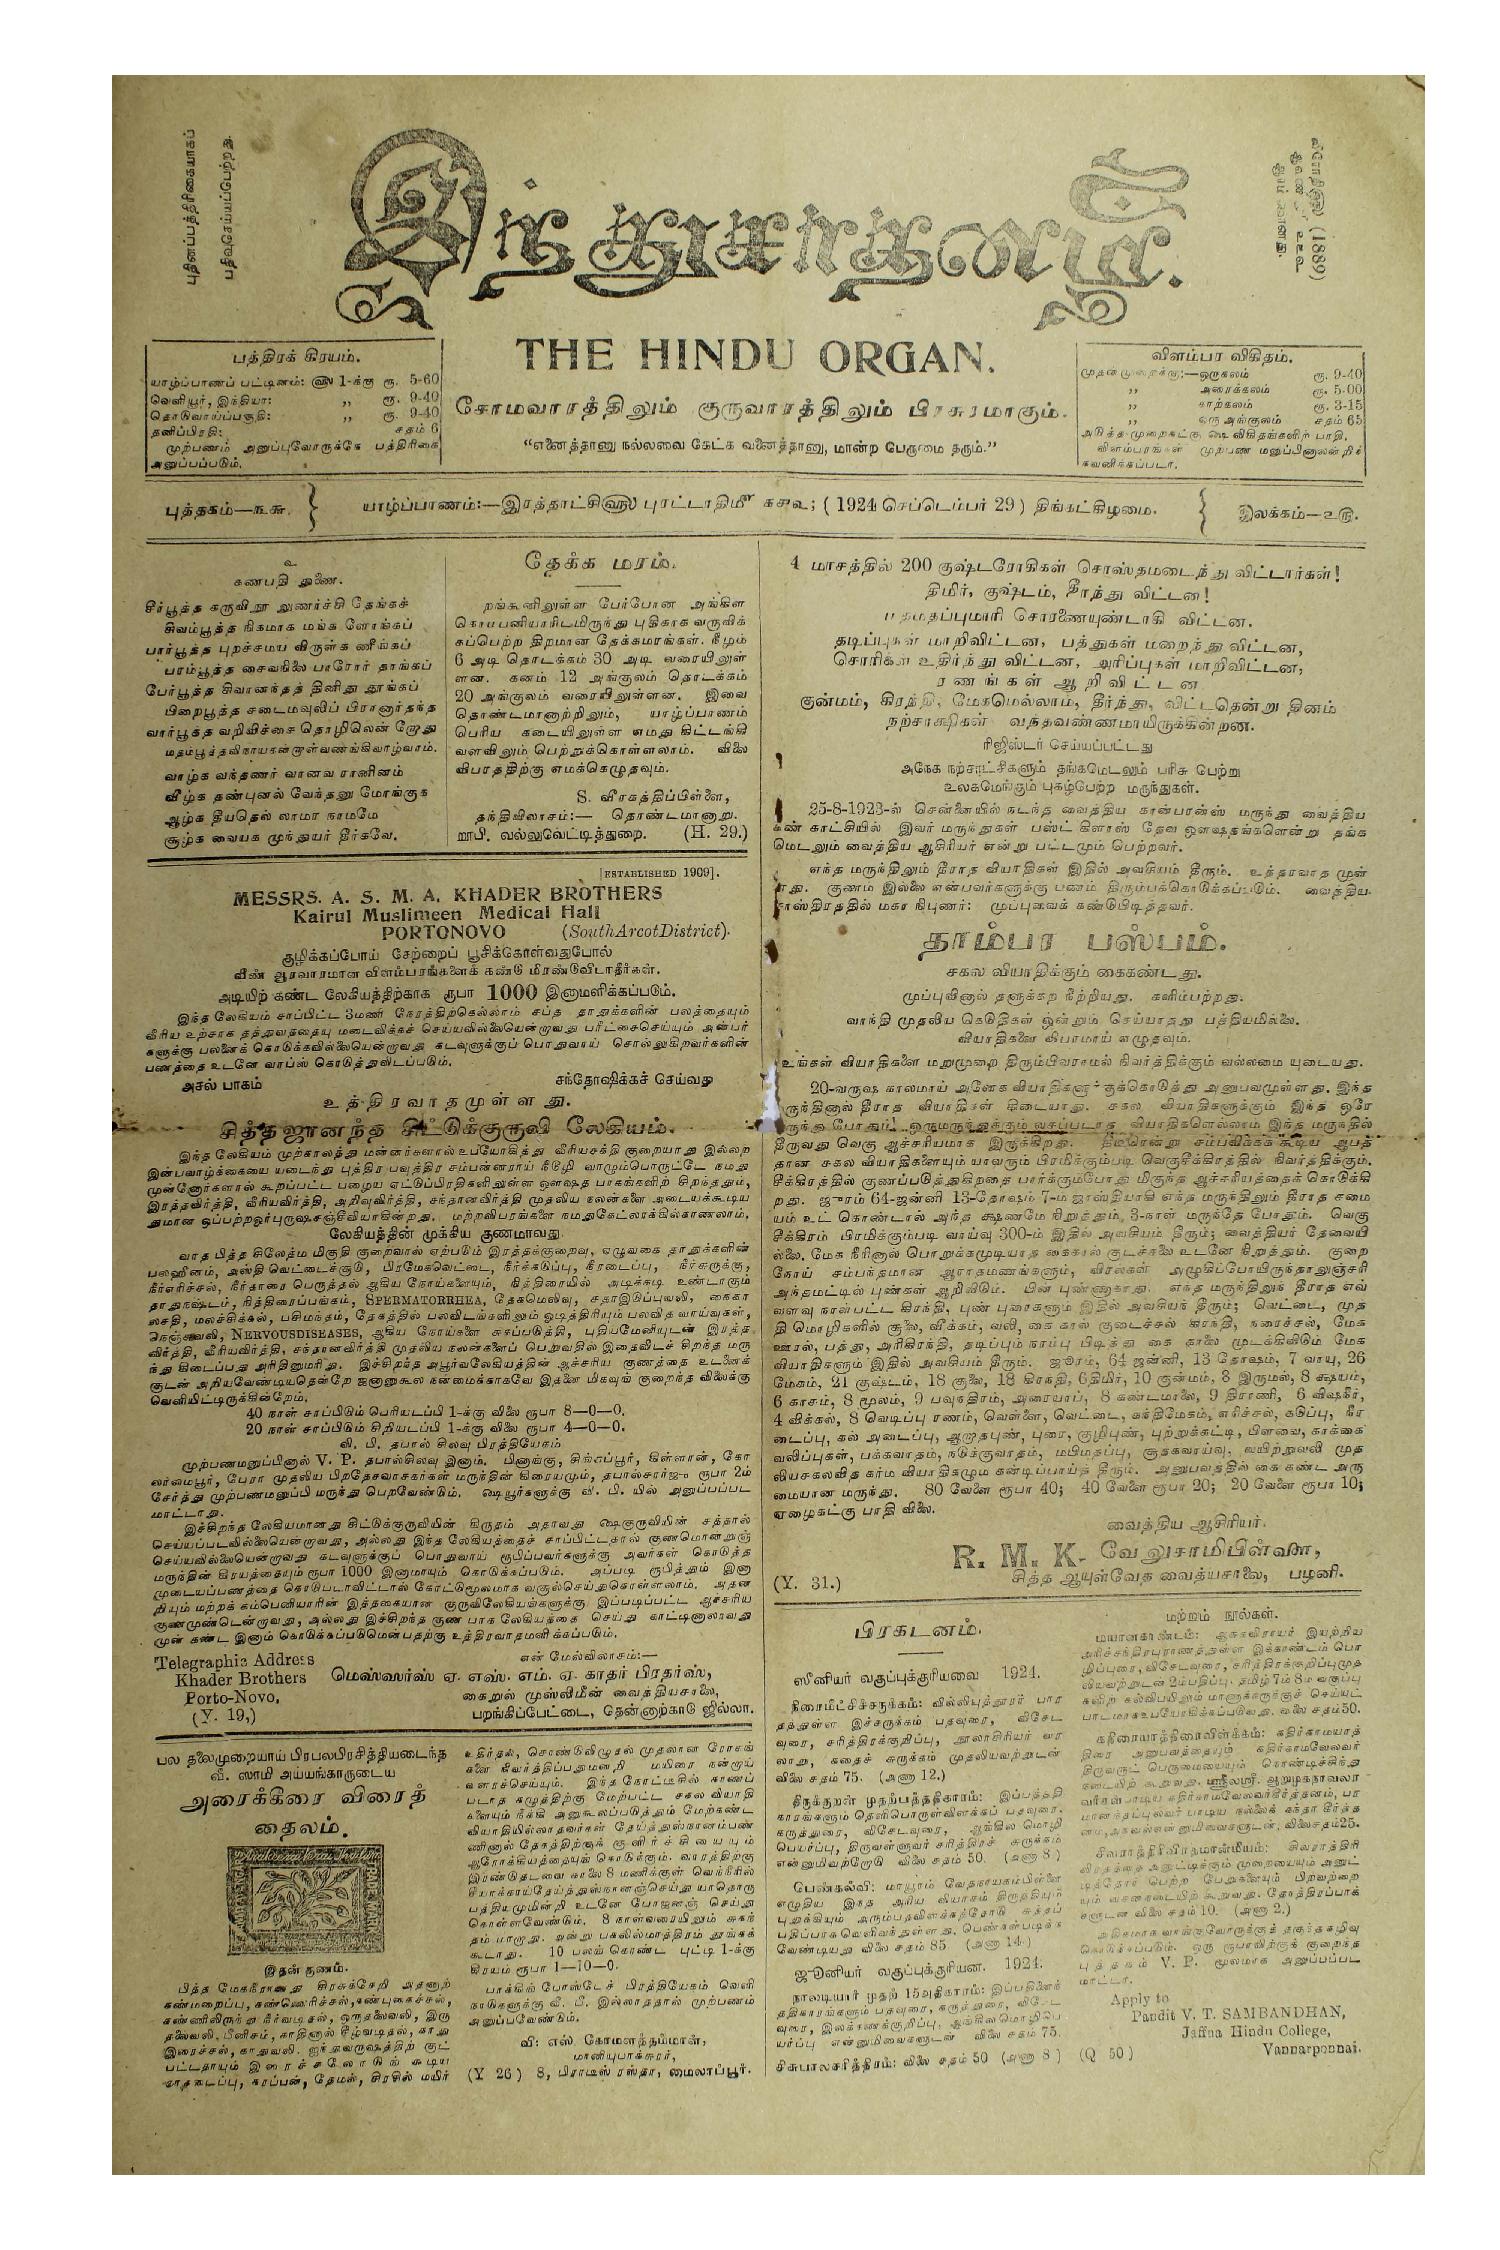 புதினப்பத்திரிகையாகப்
பதிவுசெய்யப்பெற்றது.
இந்துசாதனம்.
(1889)
THE HINDU ORGAN.
சோமவாரத்திலும் குருவாரத்திலும் பிரசுரமாகும்.
“எனைத்தானு நல்லவை கேட்க வனைத்தானு, மான்ற பேருமை தரும்.”
பத்திரக் கிரயம்.
யாழ்ப்பாணப் பட்டினம்: ௵ 1-க்கு ரூ. 5-60
வெளியூர், இந்தியா: ,, ரூ. 9-40
தொடுவாய்ப்பகுதி: ,, ரூ. 9-40
தனிப்பிரதி: சதம் 6
முற்பணம் அனுப்புவோருக்கே பத்திரிகை
அனுப்பப்படும்.
விளம்பர விகிதம்.
முதன்முறைக்கு:—ஒருகலம் ரூ. 9-40
,, அரைக்கலம் ரூ. 5-00
,, காற்கலம் ரூ. 3-15
,, ஒரு அங்குலம் சதம் 65
விளம்பரங்கள் முற்பண மனுப்பினாலன்றிக்
கவனிக்கப்படா.
புத்தகம்—௩௬.
யாழ்ப்பாணம்:—இரத்தாட்சி௵ புரட்டாதி௴ ௧௪௳ ( 1924 செப்டெம்பர் 29 ) திங்கட்கிழமை.
இலக்கம்—௨௫.
௨
கணபதி துணை.
சீர்பூத்த கருவிநூ லுணர்ச்சி தேங்கச்
சிவம்பூத்த நிகமாக மங்க ளோங்கப்
பார்பூத்த புறச்சமய விருள்க ணீங்கப்
பரம்பூத்த சைவநிலை பாரோர் தாங்கப்
பேர்பூத்த சிவானந்தத் தினிது தூங்கப்
பிறைபூத்த சடைமவுலிப் பிரானார்தந்த
வார்பூத்த வறிவிச்சை தொழிலென் றோது
மதம்பூத்தவிநாயகன்றாள்வணங்கிவாழ்வாம்.
வாழ்க வந்தணர் வானவ ரானினம்
வீழ்க தண்புனல் வேந்தனு மோங்குக
ஆழ்க தீயதெல் லாமர னாமமே
சூழ்க வையக முந்துயர் தீர்கவே.
தேக்க மரம்.
றங்கூனிலுள்ள பேர்போன அங்கில
கொம்பனியாரிடமிருந்து புதிதாக வருவிக்
கப்பெற்ற திறமான தேக்கமரங்கள். நீழம்
6 அடி தொடக்கம் 30 அடி வரையிலுள்
ளன. கனம் 12 அங்குலம் தொடக்கம்
20 அங்குலம் வரையிலுள்ளன. இவை
தொண்டமானாற்றிலும், யாழ்ப்பாணம்
பெரிய கடையிலுள்ள எமது கிட்டங்கி
வளவிலும் பெற்றுக்கொள்ளலாம். விலை
விபரத்திற்கு எமக்கெழுதவும்.
S. வீரகத்திப்பிள்ளை,
தந்திவிலாசம்:— தொண்டமானாறு.
றூபி. வல்லுவெட்டித்துறை. (H. 29.)
[ESTABLISHED 1909].
MESSRS. A. S. M. A. KHADER BROTHERS
Kairul Muslimeen Medical Hall
PORTONOVO (SouthArcotDistrict).
குழிக்கப்போய் சேற்றைப் பூசிக்கொள்வதுபோல்
வீண் ஆரவாரமான விளம்பரங்களைக் கண்டு மிரண்டுவிடாதீர்கள்.
அடியிற் கண்ட லேகியத்திற்காக ரூபா 1000 இனாமளிக்கப்படும்.
இந்த லேகியம் சாப்பிட்ட 3மணி நேரத்திற்கெல்லாம் சப்த தாதுக்களின் பலத்தையும்
வீரிய உற்சாக தத்துவத்தையு மடைவிக்கச் செய்யவில்லையென்றுவது பரீட்சைசெய்யும் அன்பர்
களுக்கு பலனைக் கொடுக்கவில்லையென்றுவது கடவுளுக்குப் பொதுவாய் சொல்லுகிறவர்களின்
பணத்தை உடனே வாப்ஸ் கொடுத்துவிடப்படும்.
அசல் பாகம் சந்தோஷிக்கச் செய்வது
உத்திரவாதமுள்ளது.
சித்தஜானந்த சிட்டுக்குருவி லேகியம்.
இந்த லேகியம் முற்காலத்து மன்னர்களால் உபயோகித்து வீரியசக்தி குறையாது இல்லற
இன்பவாழ்க்கையை யடைந்து புத்திர பவுத்திர சம்பன்னராய் நீடூழி வாழும்பொருட்டே நமது
முன்னோர்களால் கூறப்பட்ட பழைய ஏட்டுப்பிரதிகளிலுள்ள ஔஷத பாகங்களிற் சிறந்ததும்,
இரத்தவிர்த்தி, வீரியவிர்த்தி, அறிவுவிர்த்தி, சந்தானவிர்த்தி முதலிய நலன்களை அடையக்கூடிய
துமான ஒப்பற்றஓர்புருஷசஞ்சீவியாகின்றது. மற்றவிபரங்களை நமதுகேட்லாக்கில்காணலாம்.
லேகியத்தின் முக்கிய குணமாவது.
வாத பித்த சிலேத்ம மிகுதி குறைவால் ஏற்படும் இரத்தக்குறைவு, எழுவகை தாதுக்களின்
பலஹீனம், அஸ்தி வெட்டைச்சூடு, பிரமேகவெட்டை, நீர்க்கடுப்பு, நீரடைப்பு, நீர்சுருக்கு,
நீர்எரிச்சல், நீர்தாரை பெருத்தல் ஆகிய நோய்களையும், நித்திரையில் அடிக்கடி உண்டாகும்
தாதுநஷ்டம், நித்திரைப்பங்கம், SPERMATORRHEA, தேகமெலிவு, சதாஇடுப்புவலி, கைகா
லசதி, மலச்சிக்கல், பசிமந்தம், தேகத்தில் பலவிடங்களிலும் ஓடித்திரியும் பலவித வாய்வுகள்,
நெஞ்சுவலி, NERVOUSDISEASES, ஆகிய நோய்களை சுகப்படுத்தி, புதியமேனியுடன் இரத்த
விர்த்தி, வீரியவிர்த்தி, சந்தானவிர்த்தி முதலிய நலன்களைப் பெறுவதில் இதைவிடச் சிறந்த மரு
ந்து கிடைப்பது அரிதினுமரிது. இச்சிறந்த அபூர்வலேகியத்தின் ஆச்சரிய குணத்தை உடனைக்
குடன் அறியவேண்டியதென்றே ஜனானுகூல நன்மைக்காகவே இதனை மிகவுங் குறைந்த விலைக்கு
வெளியிட்டிருக்கின்றோம்.
40 நாள் சாப்பிடும் பெரியடப்பி 1-க்கு விலை ரூபா 8—0—0.
20 நாள் சாப்பிடும் சிறியடப்பி 1-க்கு விலை ரூபா 4—0—0.
வி. பி. தபால் சிலவு பிரத்தியேகம்
முற்பணமனுப்பினால் V. P. தபால்சிலவு இனாம். பினாங்கு, சிங்கப்பூர், கிள்ளான், கோ
லாலம்பூர், பேரா முதலிய பிறதேசவாசகர்கள் மருந்தின் கிரையமும், தபால்சார்ஜு ரூபா 2ம்
சேர்த்து முற்பணமனுப்பி மருந்து பெறவேண்டும். ஷெயூர்களுக்கு வீ. பி. யில் அனுப்பப்பட
மாட்டாது.
இச்சிறந்த லேகியமானது சிட்டுக்குருவியின் கிருதம் அதாவது ஷெகுருவியின் சத்தால்
செய்யப்படவில்லையென்றுவது, அல்லது இந்த லேகியத்தைச் சாப்பிட்டதால் குணமொன்றுஞ்
செய்யவில்லையென்றுவது கடவுளுக்குப் பொதுவாய் ரூபிப்பவர்களுக்கு அவர்கள் கொடுத்த
மருந்தின் கிரயத்தையும் ரூபா 1000 இனாமாயும் கொடுக்கப்படும். அப்படி ரூபித்தும் இனா
முடையப்பணத்தை கொடுபடாவிட்டால் கோர்ட்டுமூலமாக வசூல்செய்துகொள்ளலாம். அதன்
றியும் மற்றக் கம்பெனியாரின் இத்தகையான குருவிலேகியங்களுக்கு இப்படிப்பட்ட ஆச்சரிய
குணமுண்டென்றுவது, அல்லது இச்சிறந்த குண பாக லேகியத்தை செய்து காட்டினாலாவது
முன் கண்ட இனாம் கொடுக்கப்படுமென்பதற்கு உத்திரவாதமளிக்கப்படும்.
Telegraphic Address என் மேல்விலாசம்:—
Khader Brothers மெஸ்ஸர்ஸ் ஏ. எஸ். எம். ஏ. காதர் பிரதர்ஸ்,
Porto-Novo, கைறுல் முஸ்லிமீன் வைத்தியசாலை,
(Y. 19,) பறங்கிப்பேட்டை, தென்னாற்காடு ஜில்லா.
பல தலைமுறையாய் பிரபலபிரசித்தியடைந்த
வீ. ஸாமி அய்யங்காருடைய
அரைக்கீரை விரைத்
தைலம்.
இதன் குணம்.
பித்த மேகநீரானது சிரசுக்கேறி அதனாற்
கண்மறைப்பு, கண்ணெரிச்சல், கண்புகைச்சல்,
கண்ணிலிருந்து நீர்வடிதல், ஒருதலைவலி, இரு
தலைவலி, பீனிசம், காதினால் சீழ்வடிதல், காது
இரைச்சல், காதுவலி, ஐந்துவருஷத்திற் குட்
பட்டதாயும் இரைச்சலோடுங் கூடிய
காதடைப்பு, கரப்பன், தேமல், சிரசில் மயிர்
உதிர்தல், சொண்டுவிழுதல் முதலான ரோகங்
களை நீவர்த்திப்பதுமன்றி மயிரை நன்றாய்
வளரச்செய்யும். இந்த நோட்டீசில் காணப்
படாத கழுத்திற்கு மேற்பட்ட சகல வியாதி
களையும் நீக்கி அனுகூலப்படுத்தும் மேற்கண்ட
வியாதியில்லாதவர்கள் தேய்த்துஸ்நானம்பண்
ணினால் தேகத்திற்குக் குளிர்ச்சியையும்
ஆரோக்கியத்தையுங் கொடுக்கும். வாரத்திற்கு
இரண்டுதடவை காலை 8 மணிக்குள் வெந்நீரில்
சீயாக்காய்தேய்த்துஸ்நானஞ்செய்து யாதொரு
பத்தியமுமின்றி உடனே போஜனஞ் செய்து
கொள்ளவேண்டும். 8 நாள்வரையிலும் சுகந்
தம் மாறாது. அன்று பகலில்மாத்திரம் தூங்கக்
கூடாது. 10 பலங் கொண்ட புட்டி 1-க்கு
கிரயம் ரூபா 1—10—0.
பாக்கிங் போஸ்டேச் பிரத்தியேகம் வெளி
நாடுகளுக்கு வீ. பீ. இல்லாததால் முற்பணம்
அனுப்பவேண்டும்.
வி: எஸ். கோமளத்தம்மாள்,
(Y 26 ) 8, பிராடீஸ் ரஸ்தா, மைலாப்பூர்.
4 மாசத்தில் 200 குஷ்டரோகிகள் சொஸ்தமடைந்து விட்டார்கள்!
திமிர், குஷ்டம், தீர்ந்து விட்டன!
மதமதப்புமாறி சொரணையுண்டாகி விட்டன.
தடிப்புகள் மாறிவிட்டன, பத்துகள் மறைந்து விட்டன,
சொரிகள் உதிர்ந்து விட்டன, அரிப்புகள் மாறிவிட்டன,
ரணங்கள் ஆறிவிட்டன
குன்மம், கிரந்தி, மேகமெல்லாம், தீர்ந்து, விட்டதென்று தினம்
நற்சாக்ஷிகள் வந்தவண்ணமாயிருக்கின்றன.
ரிஜிஸ்டர் செய்யப்பட்டது
அநேக நற்சாட்சிகளும் தங்கமெடலும் பரிசு பெற்று
உலகமெங்கும் புகழ்பேற்ற மருந்துகள்.
25-8-1923-ல் சென்னையில் நடந்த வைத்திய கான்பரன்ஸ் மருந்து வைத்திய
கண் காட்சியில் இவர் மருந்துகள் பஸ்ட் கிளாஸ் தேவ ஔஷதங்களென்று தங்க
மெடலும் வைத்திய ஆசிரியர் என்று பட்டமும் பெற்றவர்.
எந்த மருந்திலும் தீராத வியாதிகள் இதில் அவசியம் தீரும். உத்தரவாத முன்
குணம் இல்லை என்பவர்களுக்கு பணம் திரும்பக்கொடுக்கப்படும். வைத்திய
சாஸ்திரத்தில் மகா நிபுணர்: முப்புவைக் கண்டுபிடித்தவர்.
தாம்பர பஸ்பம்.
சகல வியாதிக்கும் கைகண்டது.
முப்புவினால் தளுக்கற நீற்றியது. களிம்பற்றது.
வாந்தி முதலிய கெடுதிகள் ஒன்றும் செய்யாதது பத்தியமில்லை.
வியாதிகளை விபரமாய் எழுதவும்.
உங்கள் வியாதிகளை மறுமுறை திரும்பிவராமல் நிவர்த்திக்கும் வல்லமை யுடையது.
20-வருஷ காலமாய் அனேக வியாதிகளுக்குக்கொடுத்து அனுபவமுள்ளது. இந்த
மருந்தினால் தீராத வியாதிகள் கிடையாது. சகல வியாதிகளுக்கும் இந்த ஒரே
மருந்து போதும்! ஒருமருந்துக்கும் வசப்படாத வியாதிகளெல்லாம் இந்த மருந்தில்
தீருவது வெகு ஆச்சரியமாக இருக்கிறது. திடீரென்று சம்பவிக்கக் கூடிய ஆபத்
தான சகல வியாதிகளையும் யாவரும் பிரமிக்கும்படி வெகுசீக்கிரத்தில் நிவர்த்திக்கும்.
சீக்கிரத்தில் குணப்படுத்துகிறதை பார்க்கும்போது மிகுந்த ஆச்சரியத்தைக் கொடுக்கி
றது. ஜுரம் 64-ஜன்னி 13-தோஷம் 7-ம் ஜாஸ்தியாகி எந்த மருந்திலும் தீராத சமை
யம் உட் கொண்டால் அந்த க்ஷணமே நிறுத்தும், 3-நாள் மருந்தே போதும். வெகு
சீக்கிரம் பிரமிக்கும்படி வாய்வு 300-ம் இதில் அவசியம் தீரும்; வைத்தியர் தேவையி
ல்லை. மேக நீரினால் பொறுக்கமுடியாத கைகால் குடச்சலை உடனே நிறுத்தும். குறை
நோய் சம்பந்தமான ஆராதரணங்களும், விரல்கள் அழுகிப்போயிருந்தாலுஞ்சரி
அந்தமட்டில் புண்கள் ஆறிவிடும். பின் புண்ணாகாது. எந்த மருந்திலுந் தீராத எவ்
வளவு நாள்பட்ட கிரந்தி, புண் புரைகளும் இதில் அவசியந் தீரும்; வெட்டை, முத
தி மொழிகளில் சூலை, வீக்கம், வலி, கை கால் குடைச்சல் கிரந்தி, நரைச்சல், மேக
ஊரல், பத்து, அரிகிரந்தி, தடிப்பும் நரம்பு பிடித்து கை காலை முடக்கிவிடும் மேக
வியாதிகளும் இதில் அவசியம் தீரும். ஜூரம், 64 ஜன்னி, 13 தோஷம், 7 வாயு, 26
மேகம், 21 குஷ்டம், 18 சூலை, 18 கிரந்தி, 6திமிர், 10 குன்மம், 8 இருமல், 8 க்ஷயம்,
6 காசம், 8 மூலம், 9 பவுந்திரம், அரையாப், 8 கண்டமாலை, 9 திராணி, 6 விஷநீர்,
4 விக்கல், 8 வெடிப்பு ரணம், வெள்ளை, வெட்டை, கந்திமேகம், எரிச்சல், கடுப்பு, நீர
டைப்பு, கல் அடைப்பு, ஆறாதபுண், புரை, குழிபுண், புற்றுக்கட்டி, பிளவை, காக்கை
வலிப்புகள், பக்கவாதம், நடுக்குவாதம், மயிமதப்பு, சூதகவாய்வு, வயிற்றுவலி முத
லியசகலவித கர்ம வியாதிகளும் கண்டிப்பாய்த் தீரும். அனுபவத்தில் கைகண்ட அரு
மையான மருந்து. 80 வேளை ரூபா 40; 40 வேளை ரூபா 20; 20 வேளை ரூபா 10;
ஏழைகட்கு பாதி விலை.
வைத்திய ஆசிரியர்.
R. M. K. வேலுசாமிபிள்ளை,
(Y. 31.) சித்த ஆயுள்வேத வைத்யசாலை, பழனி.
பிரகடனம்.
ஸீனியர் வகுப்புக்குரியவை 1924.
நிரைமீட்சிச்சருக்கம்: வில்லிபுத்தூரர் பார
தத்துள்ள இச்சருக்கம் பதவுரை, விசேட
வுரை, சரித்திரக்குறிப்பு, நூலாசிரியர் வர
லாறு, கதைச் சுருக்கம் முதலியவற்றுடன்
விலை சதம் 75. (அணா 12.)
திருக்குறள் முதற்பத்ததிகாரம்: இப்பத்ததி
காரங்களும் தெளிபொருள்விளக்கப் பதவுரை,
கருத்துரை, விசேடவுரை, ஆங்கில மொழி
பெயர்ப்பு, திருவள்ளுவர் சரித்திரச் சுருக்கம்
என்னுமிவற்றோடு விலை சதம் 50. (அணா 8 )
பேண்கல்வி: மாயூரம் வேதநாயகம்பிள்ளை
எழுதிய இந்த அரிய வியாசம் திருத்தியும்
புதுக்கியும் அரும்பதவிளக்கத்தோடு சுத்தப்
பதிப்பாகவெளிவந்துள்ளது. பெண்கள்படிக்க
வேண்டியது விலை சதம் 85. (அணா 14.)
ஜூனியர் வகுப்புக்குரியன. 1924.
நாலடியார் முதற் 15அதிகாரம்: இப்பதினைந்
ததிகாரங்களும் பதவுரை, கருத்துரை, விசேட
வுரை, இலக்கணக்குறிப்பு, ஆங்கிலமொழிபெ
யர்ப்பு என்னுமிவைகளுடன் விலை சதம் 75.
சிசுபாலசரித்திரம்: விலை சதம் 50 (அணா 8 )
மற்றும் நூல்கள்.
மயானகாண்டம்: ஆசுகவிராயர் இயற்றிய
அரிச்சந்திரபுராணத்துள்ள இக்காண்டம் பொ
ழிப்புரை, விசேடவுரை, சரித்திரக்குறிப்புமுத
லியவற்றுடன் 2ம்பதிப்பு. தமிழ் 7ம் 8ம் வகுப்பு
களிற் கல்விபயிலும் மாணாக்கருக்குச் செய்யுட்
பாடமாகஉபயோகிக்கப்படுவது. விலை சதம்50.
கதிரையாத்திரைவிளக்கம்: கதிர்காமயாத்
திரை அனுபவத்தையும் கதிர்காமவேலவர்
திருவருட் பெருமையையும் கொண்டிச்சிந்து
நடையிற் கூறுவது. ஸ்ரீலஸ்ரீ. ஆறுமுகநாவலர
வர்கள்பாடிய கதிர்காமவேலவர்கீர்த்தனம், பர
மானந்தப்புலவர் பாடிய நல்லைக் கந்தர கீர்த்த
னம், அகவல்என்னுமிவைகளுடன்; விலைசதம்25.
சிவராத்திரிவிரதமான்மீயம்: சிவராத்திரி
விரதத்தை அனுட்டிக்கும் முறையையும் அனுட்
டித்தோர் பெற்ற பேறுகளையும் பிறவற்றை
யும் வசனநடையிற் கூறுவது. தோத்திரப்பாக்
களுடன் விலை சதம் 10. (அணா 2.)
அதிகமாக வாங்குவோருக்குத் தகுந்தகழிவு
கொடுக்கப்படும். ஒரு ரூபாவிற்குக் குறைந்த
புத்தகம் V. P. மூலமாக அனுப்பப்பட
மாட்டா.
Apply to
Pandit V. T. SAMBANDHAN,
Jaffna Hindu College,
(Q 50 ) Vannarponnai.